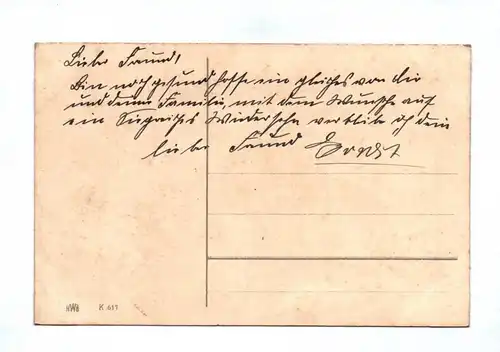 Lieber Freund!
Bin noch gesund hoffe ein gleiches von dir
und deiner Familie, mit dem Wunsche auf
ein Siegreiches Wiedersehn verbleibe ich dein
lieber Freund Ernst
K 613